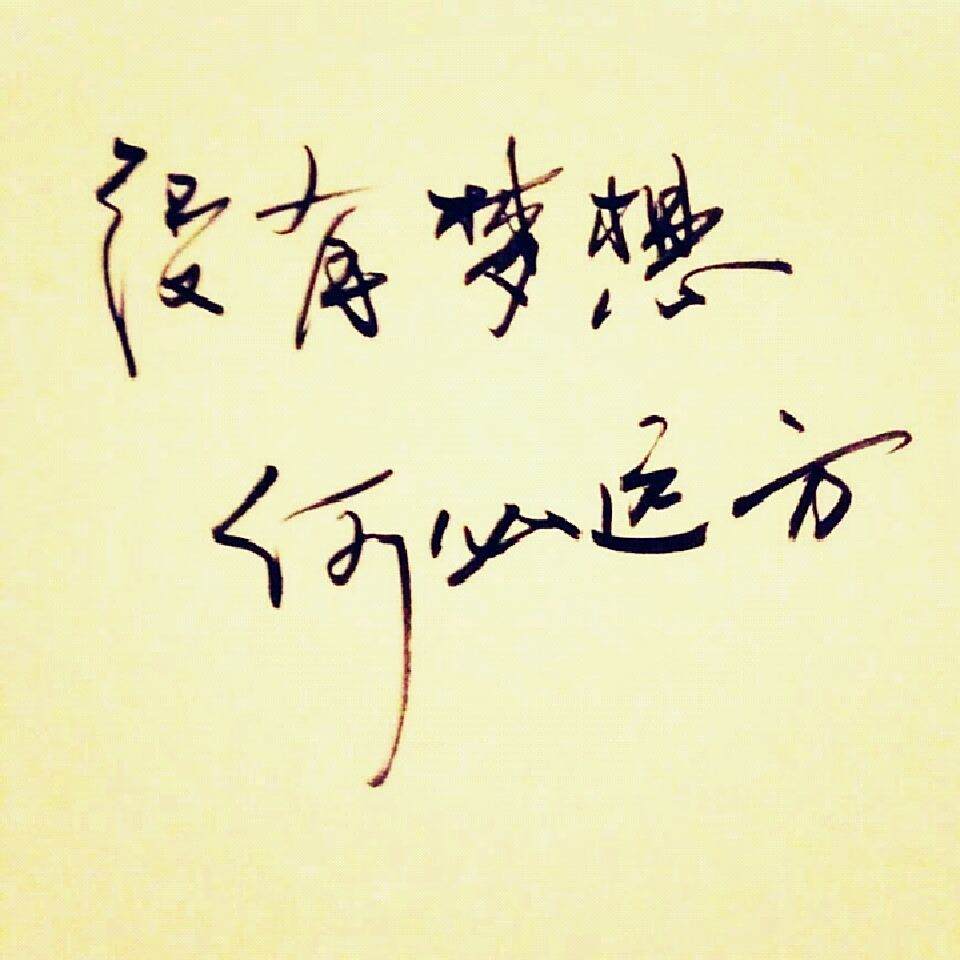 没有梦想
何必远方